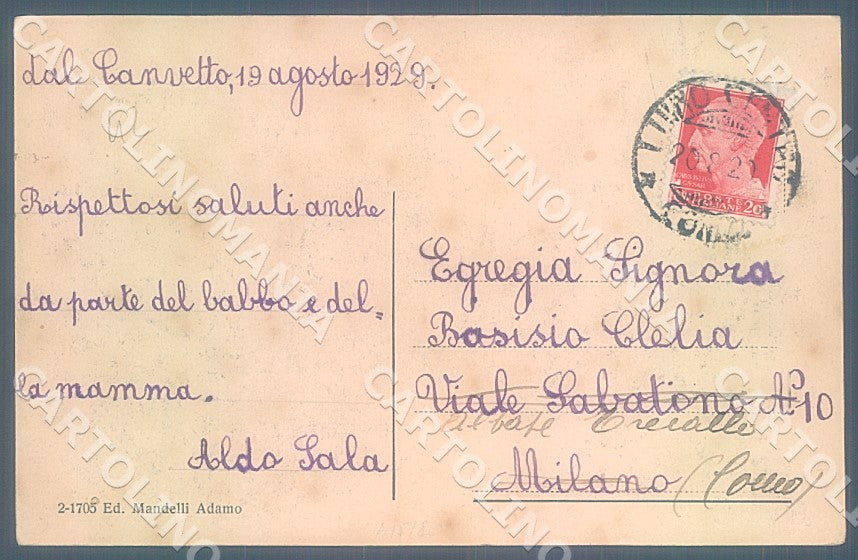 dal Canvetto, 19 agosto 1929.
Rispettosi saluti anche
da parte del babbo e del=
la mamma.
Aldo Sala
2-1705 Ed. Mandelli Adamo
20.8.29
Egregia Signora
Basisio Clelia
Viale Sabatono Nº 10
Albate Trecallo
Milano (Como)
CARTOLINOMANZIA